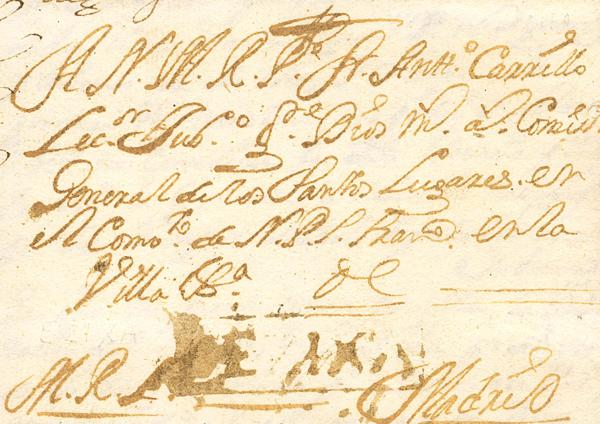 A N. M. R. P.e Fr. Antt.o Carrillo
Lec.or Jub.o g.de Dios m.s a.s Comiss
General de los Santos Lugares. en
el Comv.to de N. P. S. Franco. en la
Villa &a de
LE AXA
M. R. P. Madrid